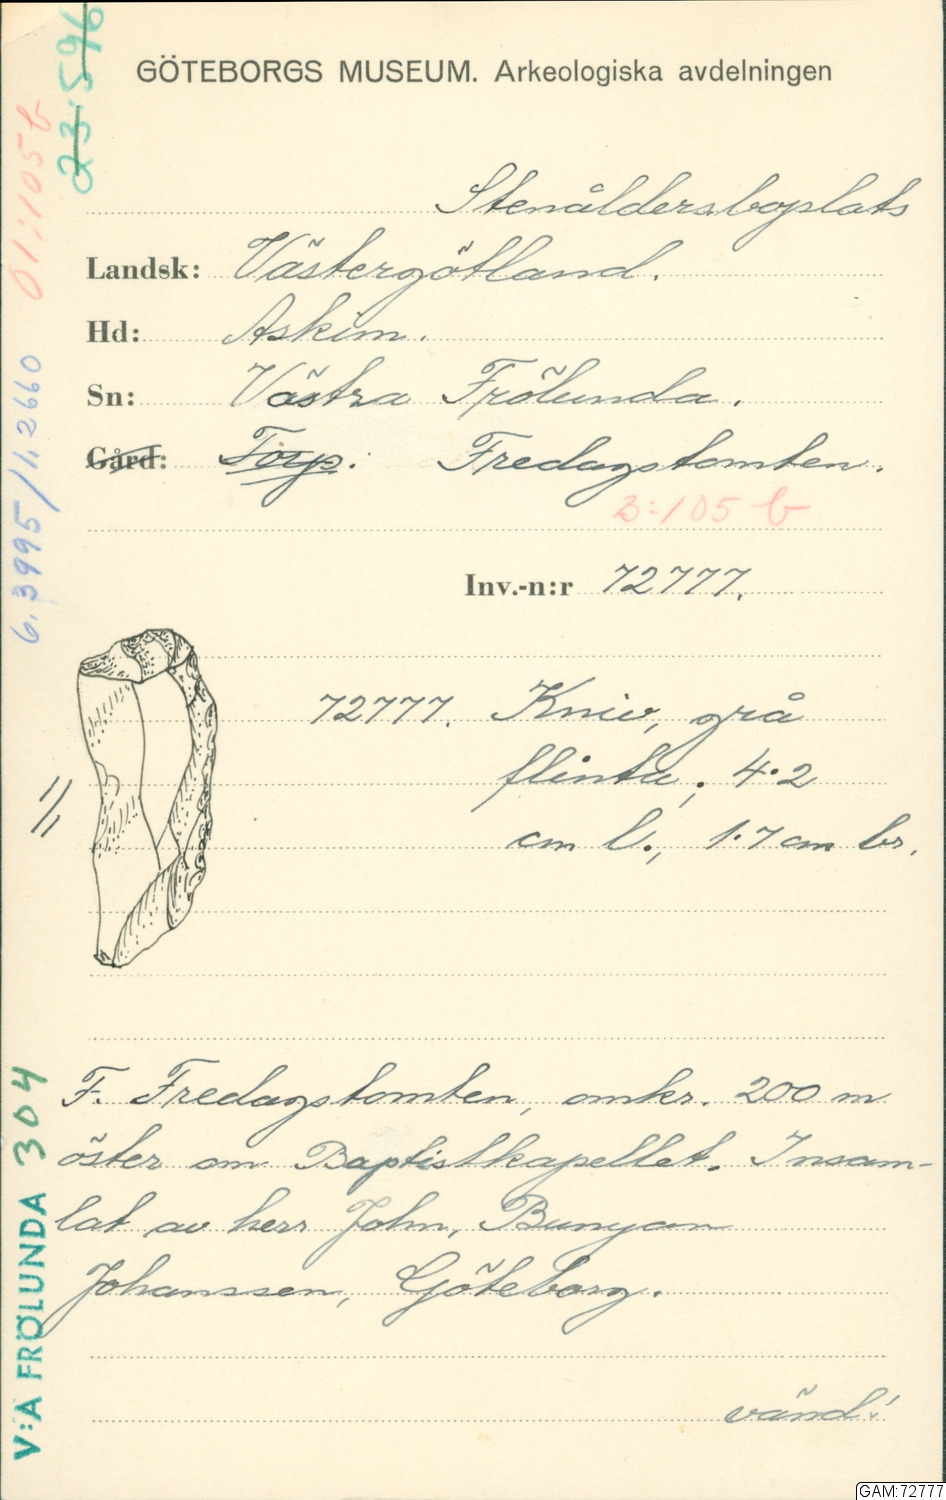 GÖTEBORGS MUSEUM. Arkeologiska avdelningen
23·596
01:105 b
6.3995/1,2660
Stenåldersboplats
Landsk: Västergötland.
Hd: Askim.
Sn: Västra Frölunda.
Gård: Torp. Fredagstomten.
3:105 b
Inv.-n:r 72777.
72777. Kniv, grå
flinta; 4·2
cm l., 1·7 cm br.
1/1
F. Fredagstomten, omkr. 200 m
öster om Baptistkapellet. Insam-
lat av herr John, Bunyan
Johanssen, Göteborg.
vänd!
V:A FRÖLUNDA 304
GAM:72777